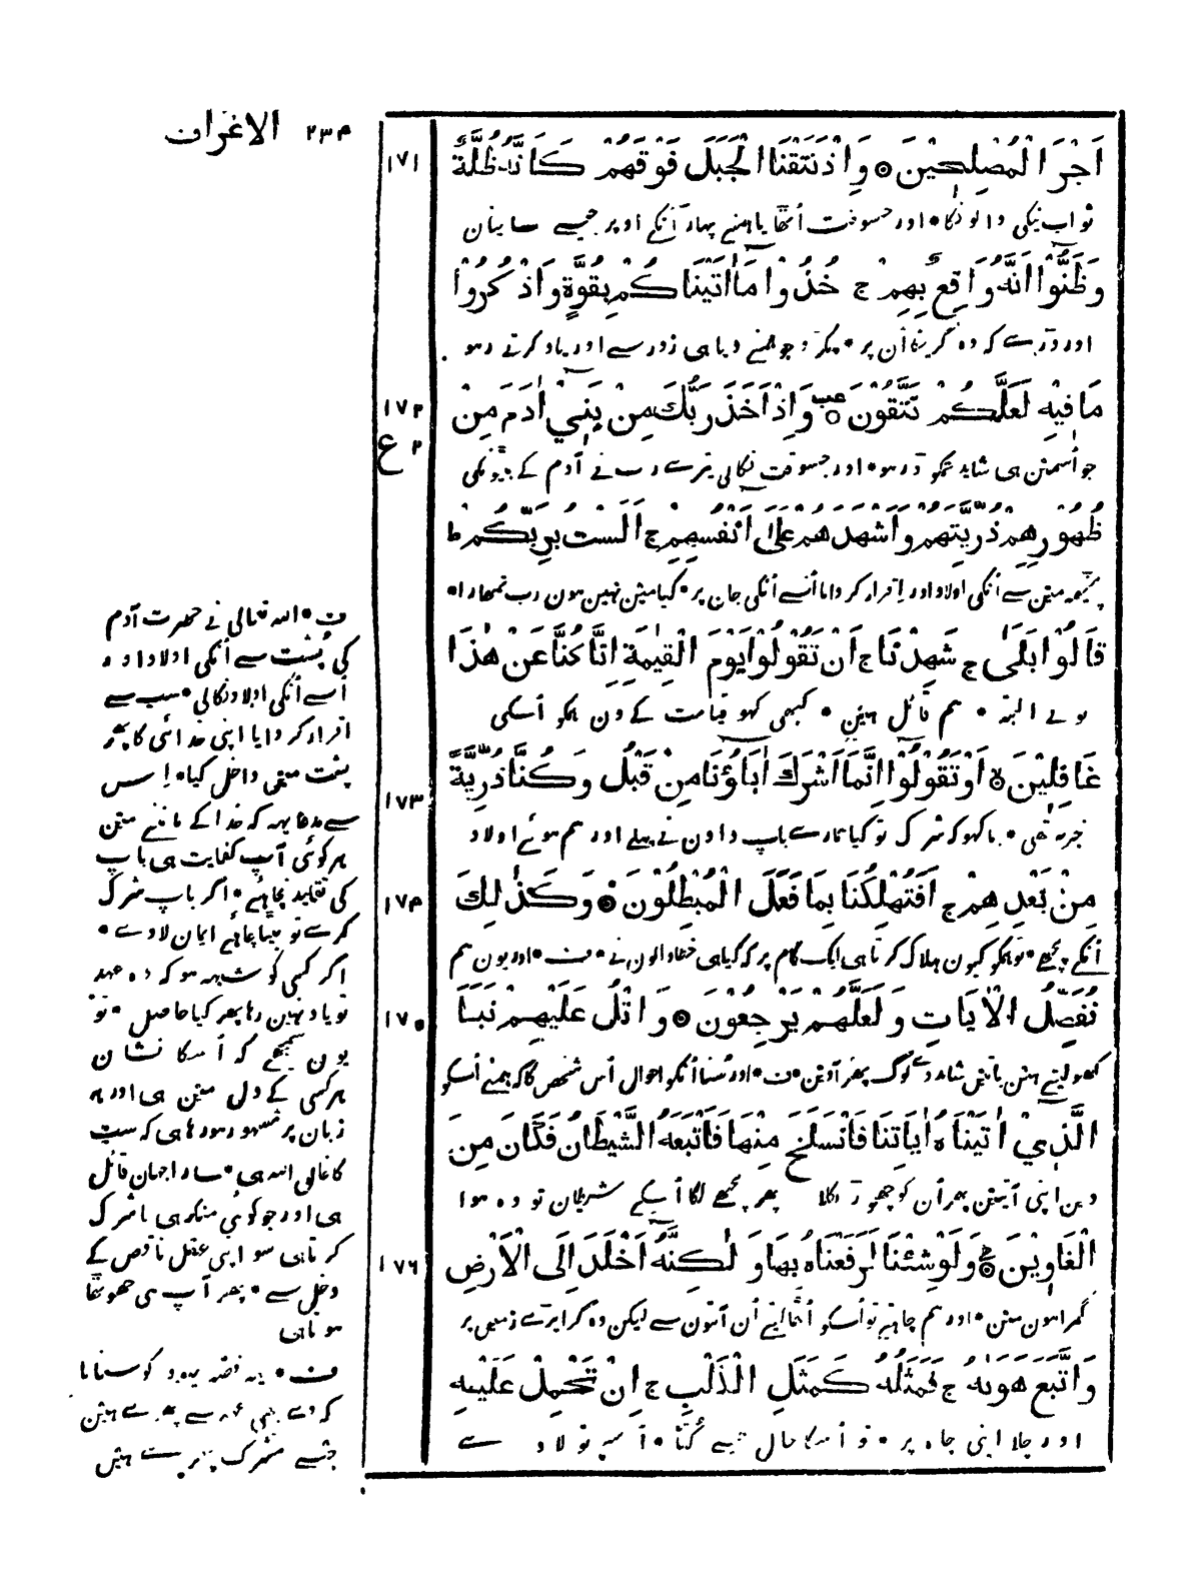 ۲۳۴ الاعراف
۱۷۱
اَجْرَ الْمُصْلِحِيْنَ ۞ وَاِذْ نَتَقْنَا الْجَبَلَ فَوْقَهُمْ كَاَنَّهُ ظُلَّةٌ
ثواب نیکی والونکا ۰ اور جسوقت اُٹھایا ہمنے پہاڑ اُنکے اوپر جیسے سایبان
وَظَنُّوْا اَنَّهُ وَاقِعٌ بِهِمْ ج خُذُوْا مَا اٰتَيْنَاكُمْ بِقُوَّةٍ وَاذْكُرُوْا
اور ڈرے کہ وہ گریگا اُن پر ۰ پکڑو جو ہمنے دیا ہی زور سے اور یاد کرتے رہو
۱۷۲
مَا فِيْهِ لَعَلَّكُمْ تَتَّقُوْنَ ۞ وَاِذْ اَخَذَ رَبُّكَ مِنْ بَنِيْ اٰدَمَ مِنْ
ع ۲
جو اُسمین ہی شاید تمکو ڈر ہو ۰ اور جسوقت نکالی تیرے رب نے آدم کے بیٹونکی
ظُهُوْرِهِمْ ذُرِّيَّتَهُمْ وَاَشْهَدَهُمْ عَلٰى اَنْفُسِهِمْ ج اَلَسْتُ بِرَبِّكُمْ ط
پیٹھہ مین سے اُنکی اولاد اور اقرار کروایا اُنسے اُنکی جان پر ۰ کیا مین نہین ہون رب تمھارا ۰
قَالُوْا بَلٰى ج شَهِدْنَا ج اَنْ تَقُوْلُوْا يَوْمَ الْقِيٰمَةِ اِنَّا كُنَّا عَنْ هٰذَا
بولے البتہ ۰ ہم قائل ہین ۰ کبھی کہو قیامت کے دن ہمکو اُسکی
۱۷۳
غَافِلِيْنَ ۞ اَوْ تَقُوْلُوْا اِنَّمَا اَشْرَكَ اٰبَاؤُنَا مِنْ قَبْلُ وَكُنَّا ذُرِّيَّةً
خبر نہ تھی ۰ یا کہو کہ شرک تو کیا ہمارے باپ دادون نے پہلے اور ہم ہوئے اولاد
۱۷۴
مِنْ بَعْدِهِمْ ج اَفَتُهْلِكُنَا بِمَا فَعَلَ الْمُبْطِلُوْنَ ۞ وَكَذٰلِكَ
اُنکے پیچھے ۰ تو ہمکو کیون ہلاک کرتا ہی ایک کام پر کہ کیا ہی خطا والون نے ۰ ف ۰ اور یون ہم
۱۷۵
نُفَصِّلُ الْاٰيَاتِ وَلَعَلَّهُمْ يَرْجِعُوْنَ ۞ وَاتْلُ عَلَيْهِمْ نَبَاَ
کھولتے ہین باتین شاید وے لوگ پھر آوین ۰ ف ۰ اور سُنا اُنکو احوال اُس شخص کا کہ ہمنے اُسکو
الَّذِيْ اٰتَيْنَاهُ اٰيَاتِنَا فَانْسَلَخَ مِنْهَا فَاَتْبَعَهُ الشَّيْطَانُ فَكَانَ مِنَ
دین اپنی آیتین پھر اُن کو چھوڑ نکلا پھر پیچھے لگا اُسکے شیطان تو وہ ہوا
۱۷۶
الْغَاوِيْنَ ۞ وَلَوْ شِئْنَا لَرَفَعْنَاهُ بِهَا وَلٰكِنَّهُ اَخْلَدَ اِلَى الْاَرْضِ
گمراہون مین ۰ اور ہم چاہتے تو اُسکو اُٹھا لیتے اُن آیتون سے لیکن وہ گرا پڑے زمین پر
وَاتَّبَعَ هَوٰىهُ ج فَمَثَلُهُ كَمَثَلِ الْكَلْبِ ج اِنْ تَحْمِلْ عَلَيْهِ
اور چلا اپنی چاہ پر ۰ تو اُسکا حال جیسے کُتا ۰ اُسپر تو لادے
ف ۰ اللہ تعالی نے حضرت آدم
کی پُشت سے اُنکی اولاد اور
اُسے اُنکی اولاد نکالی ۰ سب سے
اقرار کروایا اپنی خدائی کا پھر
پشت مین داخل کیا ۰ اِس
سے مدعا یہہ کہ خدا کے ماننے مین
ہر کوئی آپ کفایت ہی باپ
کی تقلید نچاہئے ۰ اگر باپ شرک
کرے تو بیٹا چاہئے ایمان لاوے ۰
اگر کسی کو شبہہ ہو کہ وہ عہد
تو یاد نہین رہا پھر کیا حاصل ۰ تو
یون سمجھے کہ اُسکا نشان
ہر کسی کے دل مین ہی اور ہر
زبان پر مشہور ہو رہا ہی کہ سب
کا خالق اللہ ہی ۰ سارا جہان قائل
ہی اور جو کوئی منکر ہی یا شرک
کرتا ہی سو اپنی عقل ناقص کے
دخل سے ۰ پھر آپ ہی جھوٹھا
ہوتا ہی
ف ۰ یہہ قصہ یہود کو سنایا
کہ وے بھی عہد سے پھرے ہین
جیسے مشرک پھرے ہین